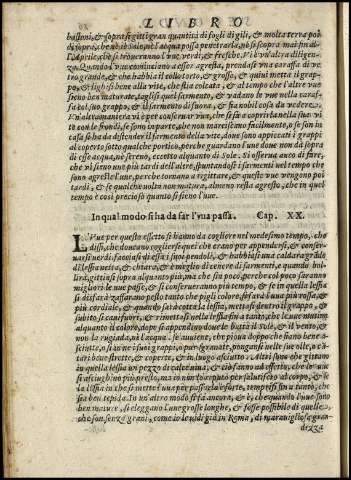 LIBRO
bastoni, & sopra si gitti gran quantità di fogli di gili, & molta terra poi
di sopra, che nè il Sole, nè l'acqua possa penetrarla, nè si scopra mai fin al-
l'Aprile, che si troueranno l'vue verdi, & fresche. Vi è vn'altra diligen-
za. Quando l'vue cominciano a esser agresta, prendasi vna carafa di ve-
tro grande, et che habbia il collo torto, & grosso, & quiui metta il grap-
po, & lighisi bene alla vite, che stia colcata, & al tempo che l'altre vue
sieno ben mature, taglisi quel sarmento, & vadano le vue nella carafa
col suo grappo, & il sarmento di fuora, & fia nobil cosa da vedere.
Vn'altra maniera vi è per conseruar vua, che si fia coprirla nella sua vi
te con le frondi, se sono in parte, che non marciscano facilmente, o se son in
casa si ha da distender il sarmento della vite, doue sono appiccati i grappi
al coperto sotto qualche portico, perche guardano l'vue doue non dà sopra
di esse acqua, nè sereno, eccetto alquanto di Sole. Si osserua anco di fare,
che vi sieno vue più tardi dell'altre, spuntandosi i sarmenti nel tempo che
sono agreste l'vue, perche tornano a rigittare, & queste vue vengono poi
tardi, & se qualche volta non matura, almeno resta agresto, che in quel
tempo è così precioso quanto si fieno l'vue.
In qual modo si ha da far l'vua passa. Cap. XX.
L'Vue per questo effetto si hanno da cogliere nel medesimo tempo, che
dissi, che doueano cogliersi quei che erano per appendersi, & conser-
uarsi verdi, facciasi di essi i suoi pendoli, & habbiasi vna caldara grande
di lessiua netta, & chiara, & è meglio di cenere di sarmenti, e quando bol-
le, si gittisi sopra alquanto più, ma che sia poco, perche col poco saranno
migliori le vue passe, & si conserueranno più tempo, & se in quella lessia
si disfarà zaffarano pesto tanto che pigli colore, si farà l'vua più rossa, &
più cordiale, & quando sarà cotta la lessia, metta si dentro il grappo, &
subito si caui fuori, & rimettasi nella lessia fin a tanto, che le vue mutino
alquanto il colore, dopò si appendino doue le batta il sole, & il vento, &
non la rugiada, nè l'acqua, se auuiene, che pioua, doppo che siano bene a-
sciutte, si scuota il grappo, o pur spennato, pongansi nelle sue olle, o ca-
tari bene strette, & coperte, & in luogo asciutto. Altri sono che gittano
in questa lessia vn pezzo di calce viua, & ciò fanno ad effetto, che le vue
si asciughino più presto, ma con tutto ciò può per l'asciutto al corpo, & se
la lessia in che si mette l'vua per passarla è forte, tempresi fin a tanto, che
sia ben tepida. In vn'altro modo si fà ancora, & è, che quando l'vue sono
ben mature, si eleggano l'vue grosse longhe, & fosse possibile di quelle
che son senza grani, come io ne vidi già in Roma, di marauigliosa gran-
dezza